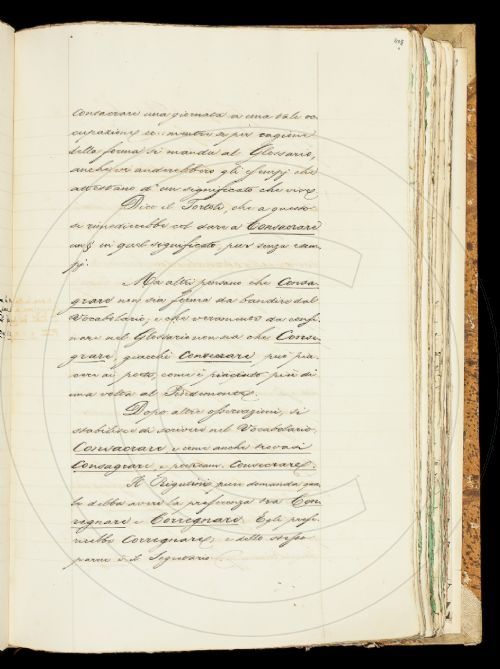 consacrare una giornata a una tale oc-
cupazione ec. mentre se per cagione
della forma si manda al Glossario,
anche vi anderebbero gli esempj che
attestano d'un significato che vive.
Dice il Tortoli, che a questo
si rimedierebbe col dare a Consacrare
anche quel significato, pur senza esem-
pj.
Ma altri pensano che Consa-
grare non sia forma da bandire dal
Vocabolario; e che veramente da confi-
nare nel Glossario non sia che Conse-
grare, giacchè Consecrare può pia-
cere ai poeti, come è piaciuto più di
una volta al
Dopo altre osservazioni, si
stabilisce di scrivere nel Vocabolario
Consacrare, e come anche trovasi
Consagrare, e poeticam. Consecrare.
Il Rigutini pure domanda qua-
le debba avere la preferenza tra Con-
regnare e Corregnare. Egli prefe-
rirebbe Corregnare; e dello stesso
parere è il Segretario